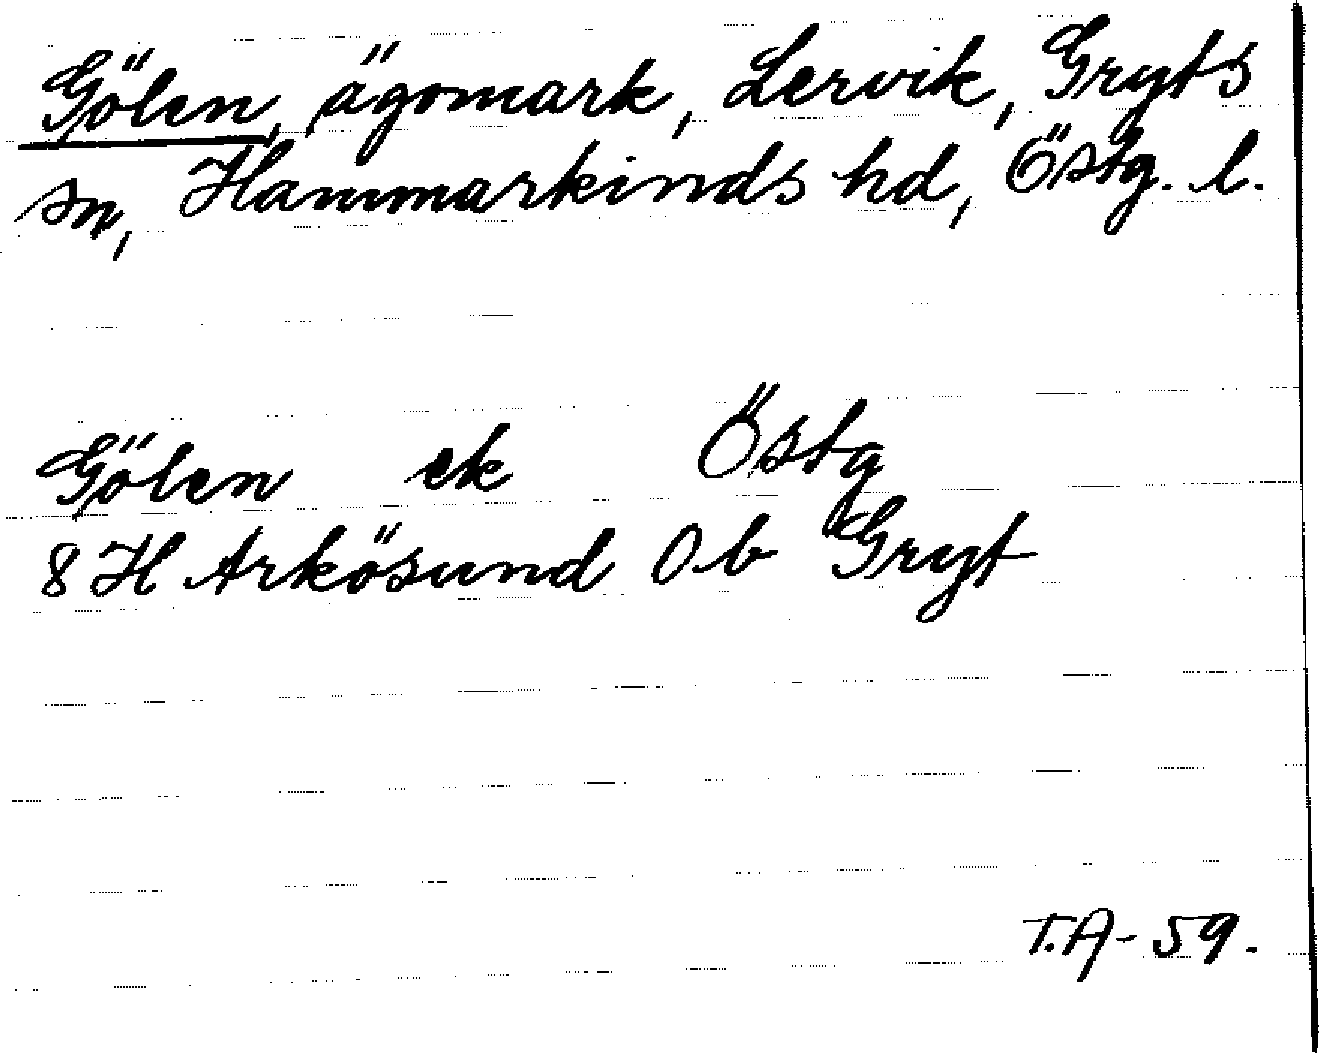 Gölen, ägomark, Lervik, Gryts
sn, Hammarkinds hd, Östg. l.
Gölen ek Östg
8 H Arkösund O b Gryt
T.A-59.